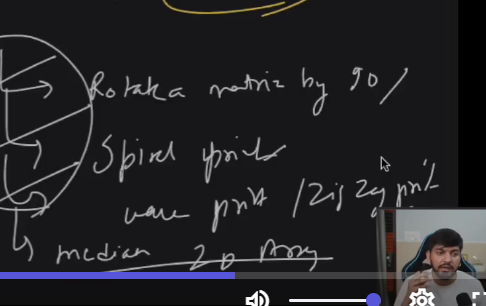 Rotate a matrix by 90/
Spiral print
wave print / Zig Zag print
median 2D Array